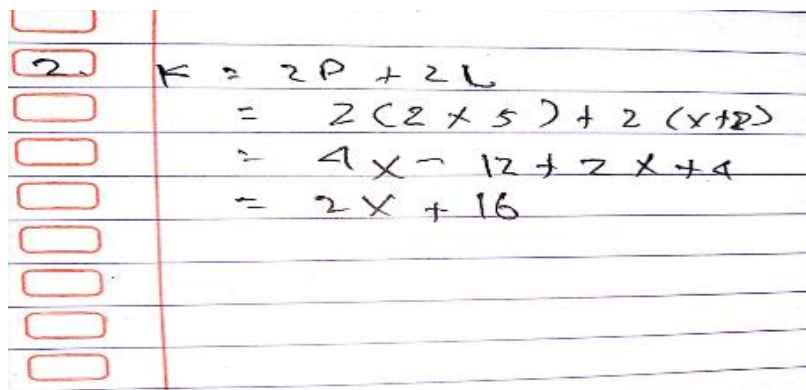 2. K = 2P + 2L
= 2(2x5) + 2(x+2)
= 4x - 12 + 2x + 4
= 2x + 16